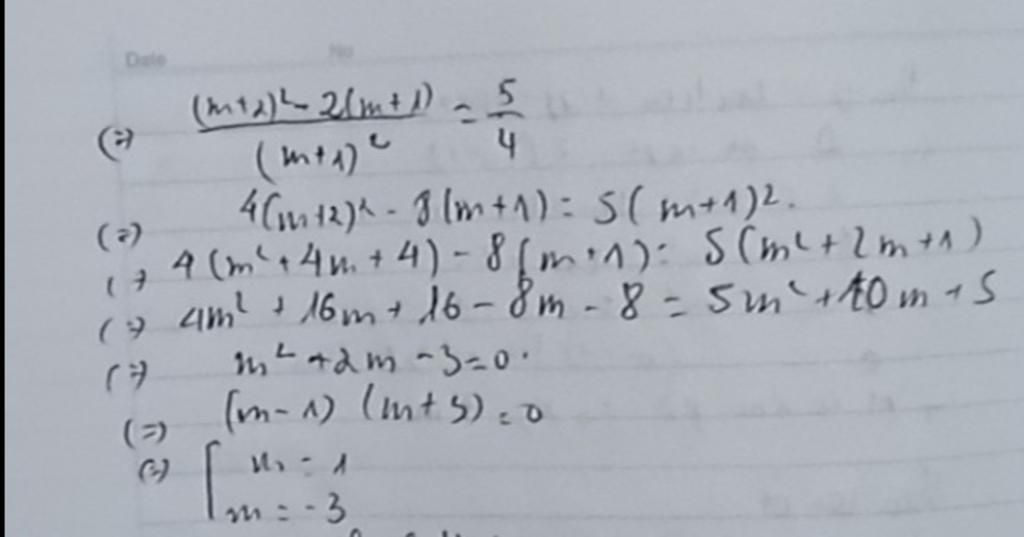 Date No
(=) ((m+2)² - 2(m+1))/(m+1)² = 5/4
(=) 4(m+2)² - 8(m+1) = 5(m+1)².
(=) 4(m² + 4m + 4) - 8(m+1) = 5(m² + 2m + 1)
(=) 4m² + 16m + 16 - 8m - 8 = 5m² + 10m + 5
(=) m² + 2m - 3 = 0.
(=) (m - 1) (m + 3) = 0
(=) [ m = 1
m = -3